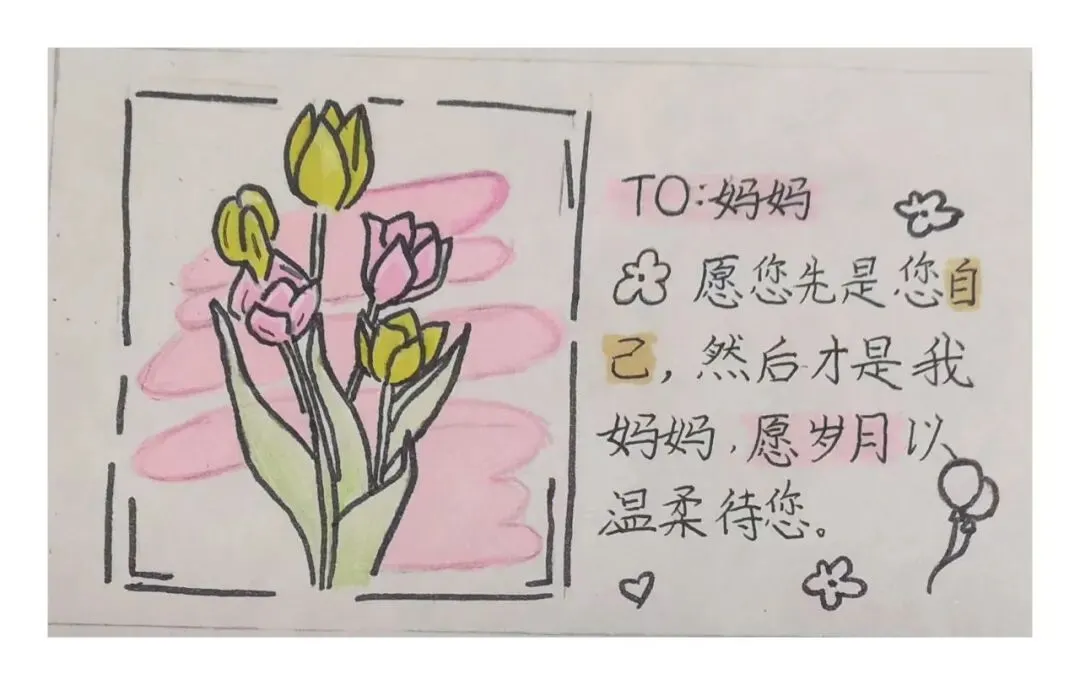 TO:妈妈
愿您先是您自
己，然后才是我
妈妈，愿岁月以
温柔待您。